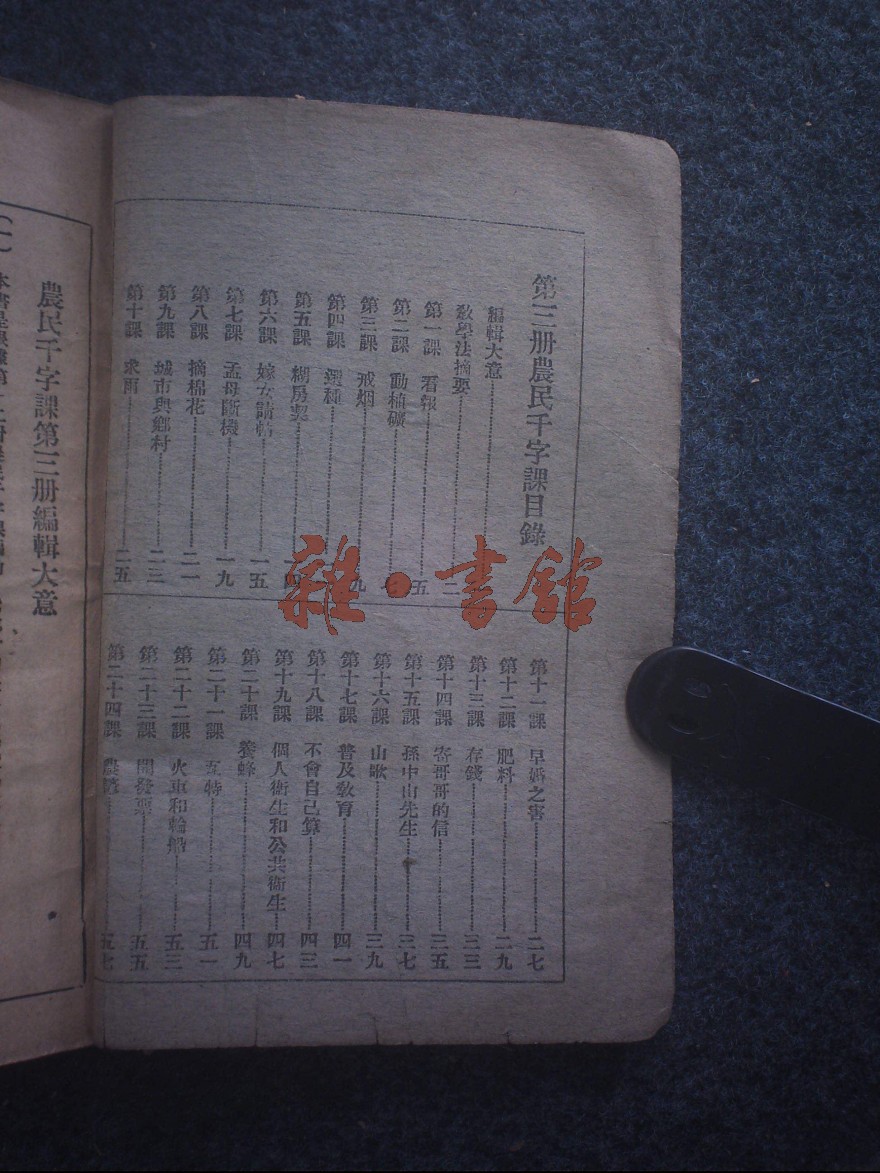 第三册農民千字課目錄
編輯大意
敎學法摘要 二
第一課 看報 五
第二課 動植礦
第三課 戒烟 九
第四課 選種
第五課 糊房契 一四
第六課 嫁女請帖 一五
第七課 孟母斷機 一九
第八課 摘棉花 二一
第九課 城市與鄉村 二三
第十課 求雨 二五
第十一課 早婚之害 二七
第十二課 肥料 二九
第十三課 存錢 三三
第十四課 寄哥哥的信 三五
第十五課 孫中山先生 三七
第十六課 山歌 三九
第十七課 普及敎育 四一
第十八課 不會自己算 四三
第十九課 個人衞生和公共衞生 四七
第二十課 養蜂 四九
第二十一課 瓦特 五一
第二十二課 火車和輪船 五三
第二十三課 開發票 五五
第二十四課 農 五七
農民千字課第三册編輯大意
(一) 本書是
雜·書館